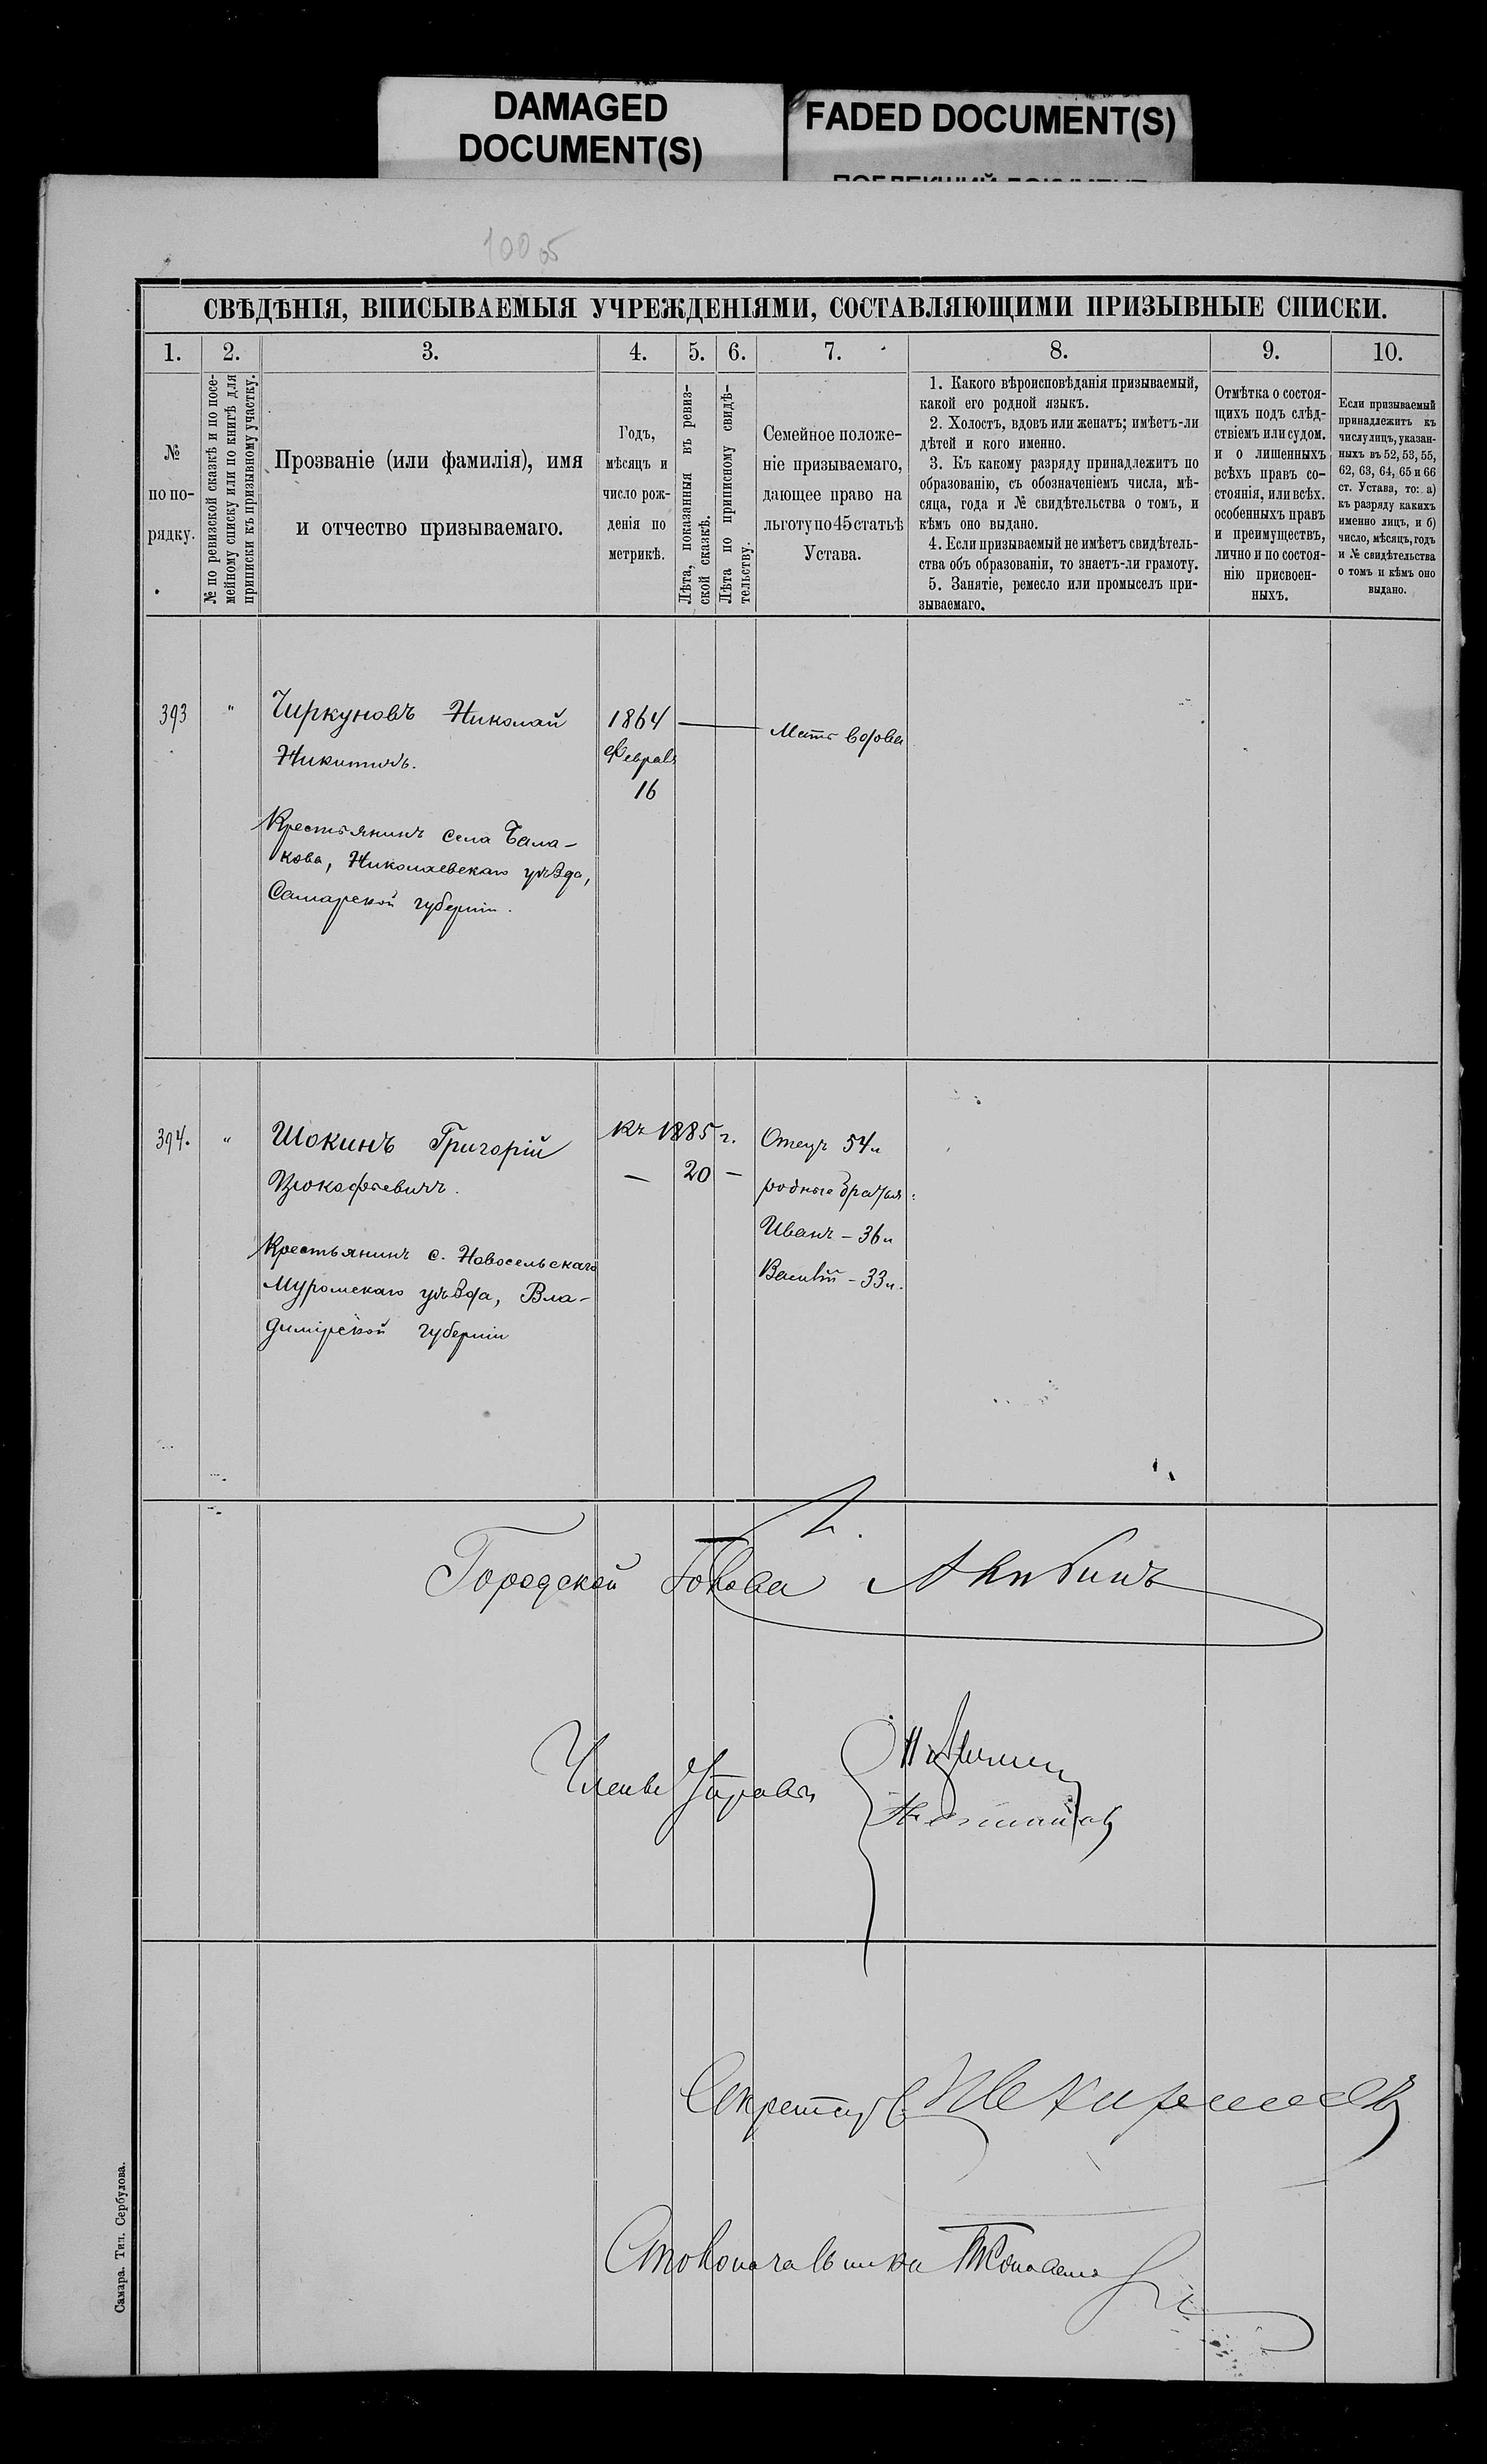 DAMAGED
DOCUMENT(S)
FADED DOCUMENT(S)
СВѢДѢНІЯ, ВПИСЫВАЕМЫЯ УЧРЕЖДЕНІЯМИ, СОСТАВЛЯЮЩИМИ ПРИЗЫВНЫЕ СПИСКИ.
1. 2. 3. 4. 5. 6. 7. 8. 9. 10.
№
по по-
рядку.
№ по ревизской сказкѣ и по посе-
мейному списку или по книгѣ для
приписки къ призывному участку.
Прозваніе (или фамилія), имя
и отчество призываемаго.
Годъ,
мѣсяцъ и
число рож-
денія по
метрикѣ.
Лѣта, показанныя въ ревиз-
ской сказкѣ.
Лѣта по приписному свидѣ-
тельству.
Семейное положе-
ніе призываемаго,
дающее право на
льготу по 45 статьѣ
Устава.
1. Какого вѣроисповѣданія призываемый,
какой его родной языкъ.
2. Холостъ, вдовъ или женатъ; имѣетъ-ли
дѣтей и кого именно.
3. Къ какому разряду принадлежитъ по
образованію, съ обозначеніемъ числа, мѣ-
сяца, года и № свидѣтельства о томъ, и
кѣмъ оно выдано.
4. Если призываемый не имѣетъ свидѣтель-
ства объ образованіи, то знаетъ-ли грамоту.
5. Занятіе, ремесло или промыселъ при-
зываемаго.
Отмѣтка о состоя-
щихъ подъ слѣд-
ствіемъ или судом.
и о лишенныхъ
всѣхъ правъ со-
стоянія, или всѣх.
особенныхъ правъ
и преимуществъ,
лично и по состоя-
нію присвоен-
ныхъ.
Если призываемый
принадлежитъ къ
числу лицъ, указан-
ныхъ въ 52, 53, 55,
62, 63, 64, 65 и 66
ст. Устава, то: а)
къ разряду какихъ
именно лицъ, и б)
число, мѣсяцъ, годъ
и № свидѣтельства
о томъ и кѣмъ оно
выдано.
393 "
Чиркуновъ Николай
Никитичъ.
Крестьянинъ села Бала-
кова, Николаевскаго уѣзда,
Самарской губерніи.
1864
Февраля
16
Мать вдова
394. "
Шокинъ Григорій
Прокофьевичъ.
Крестьянинъ с. Новосельскаго
Муромскаго уѣзда, Вла-
димірской губерніи
Къ 1885 г.
— 20 —
Отецъ 54
родные братья:
Иванъ – 36
Василій – 33
Городской Голова
Члены Управы
Секретарь
Столоначальники
Самара. Тип. Сербулова.